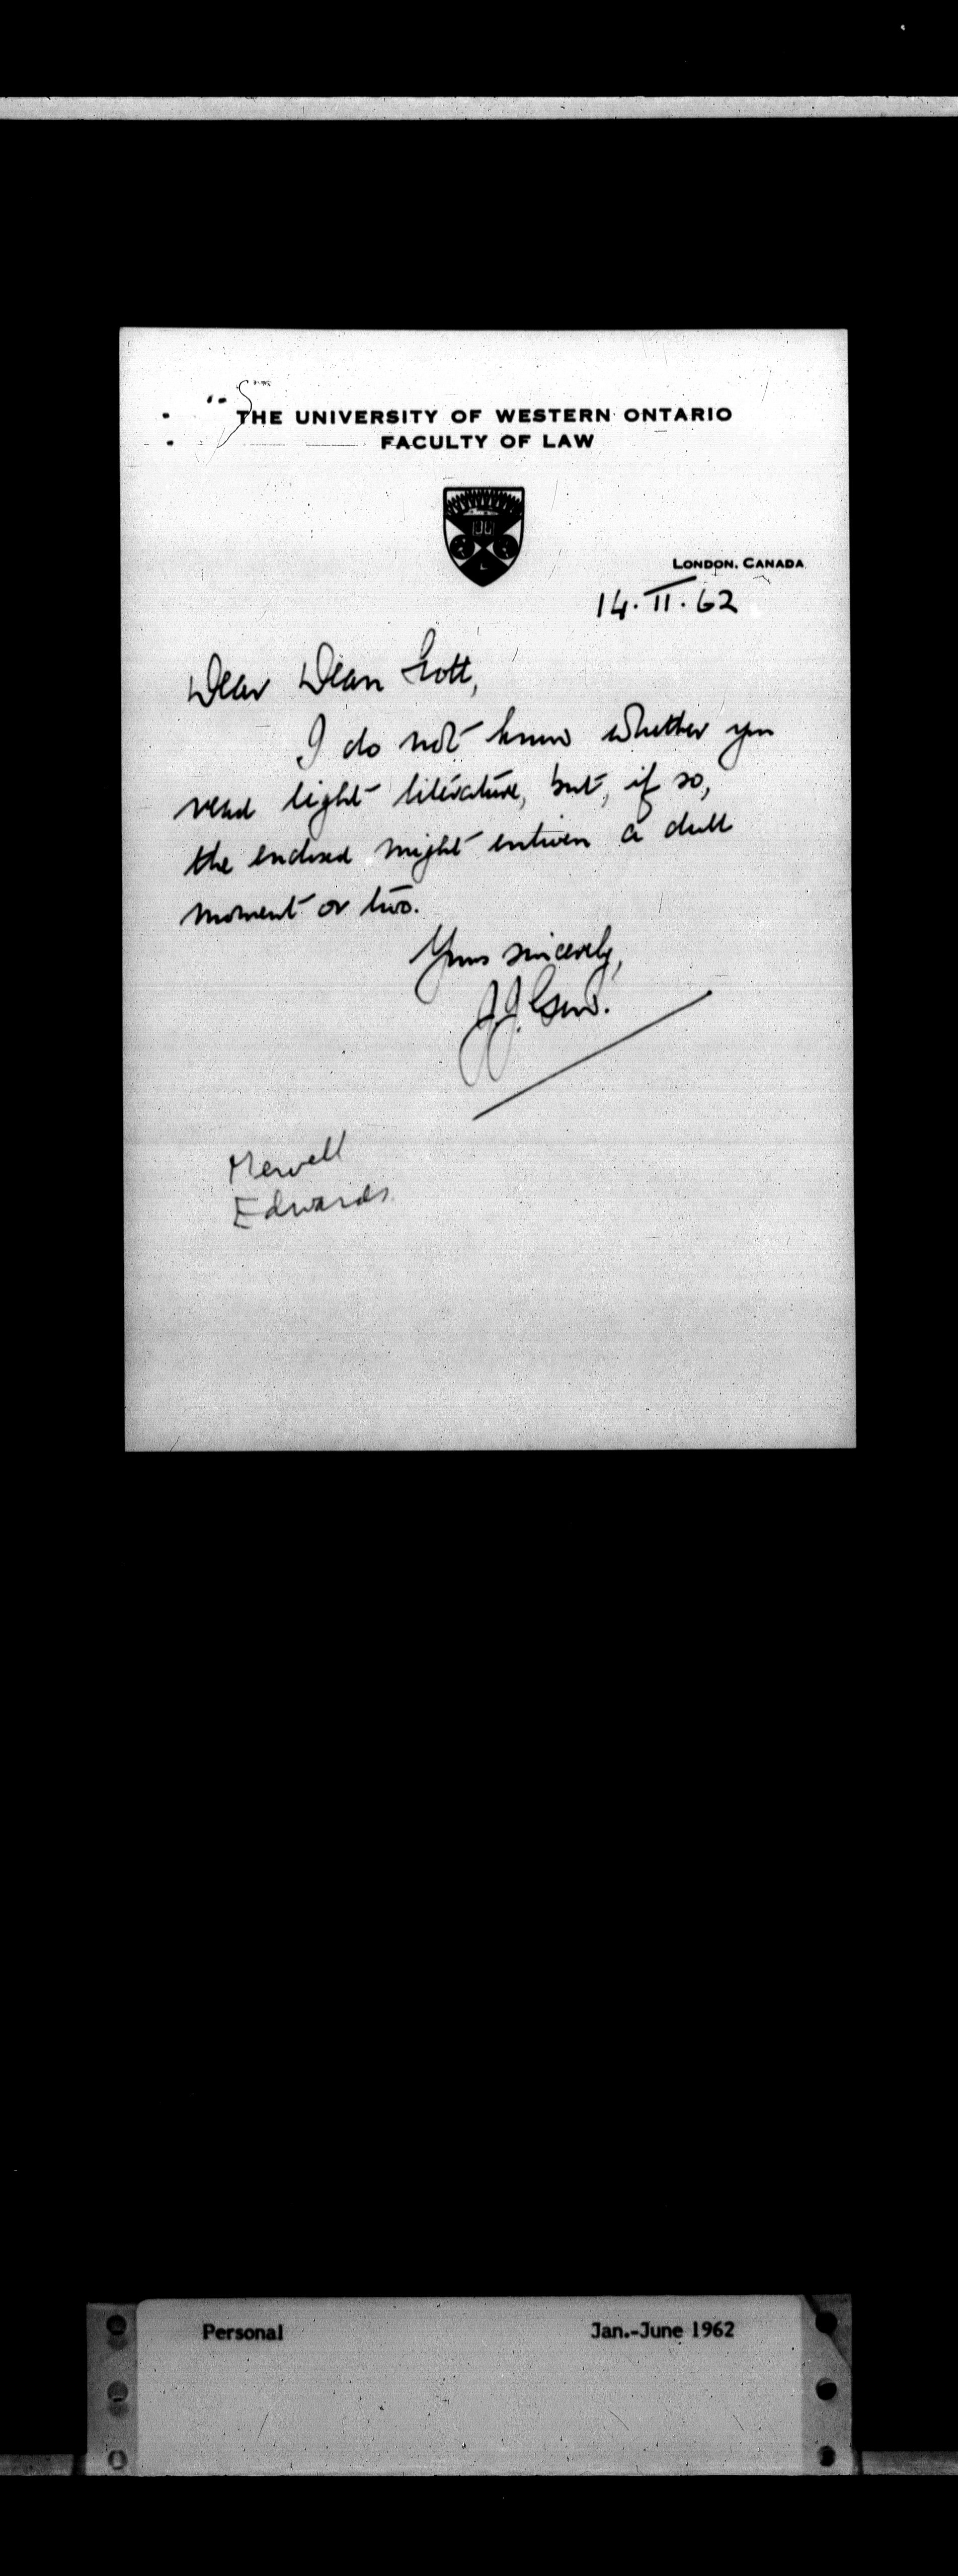 THE UNIVERSITY OF WESTERN ONTARIO
FACULTY OF LAW
LONDON, CANADA
14.II.62
Dear Dean Scott,
I do not know whether you
read light literature, but, if so,
the enclosed might enliven a dull
moment or two.
Yours sincerely,
J.J.
Mervell
Edwards
Personal Jan.-June 1962